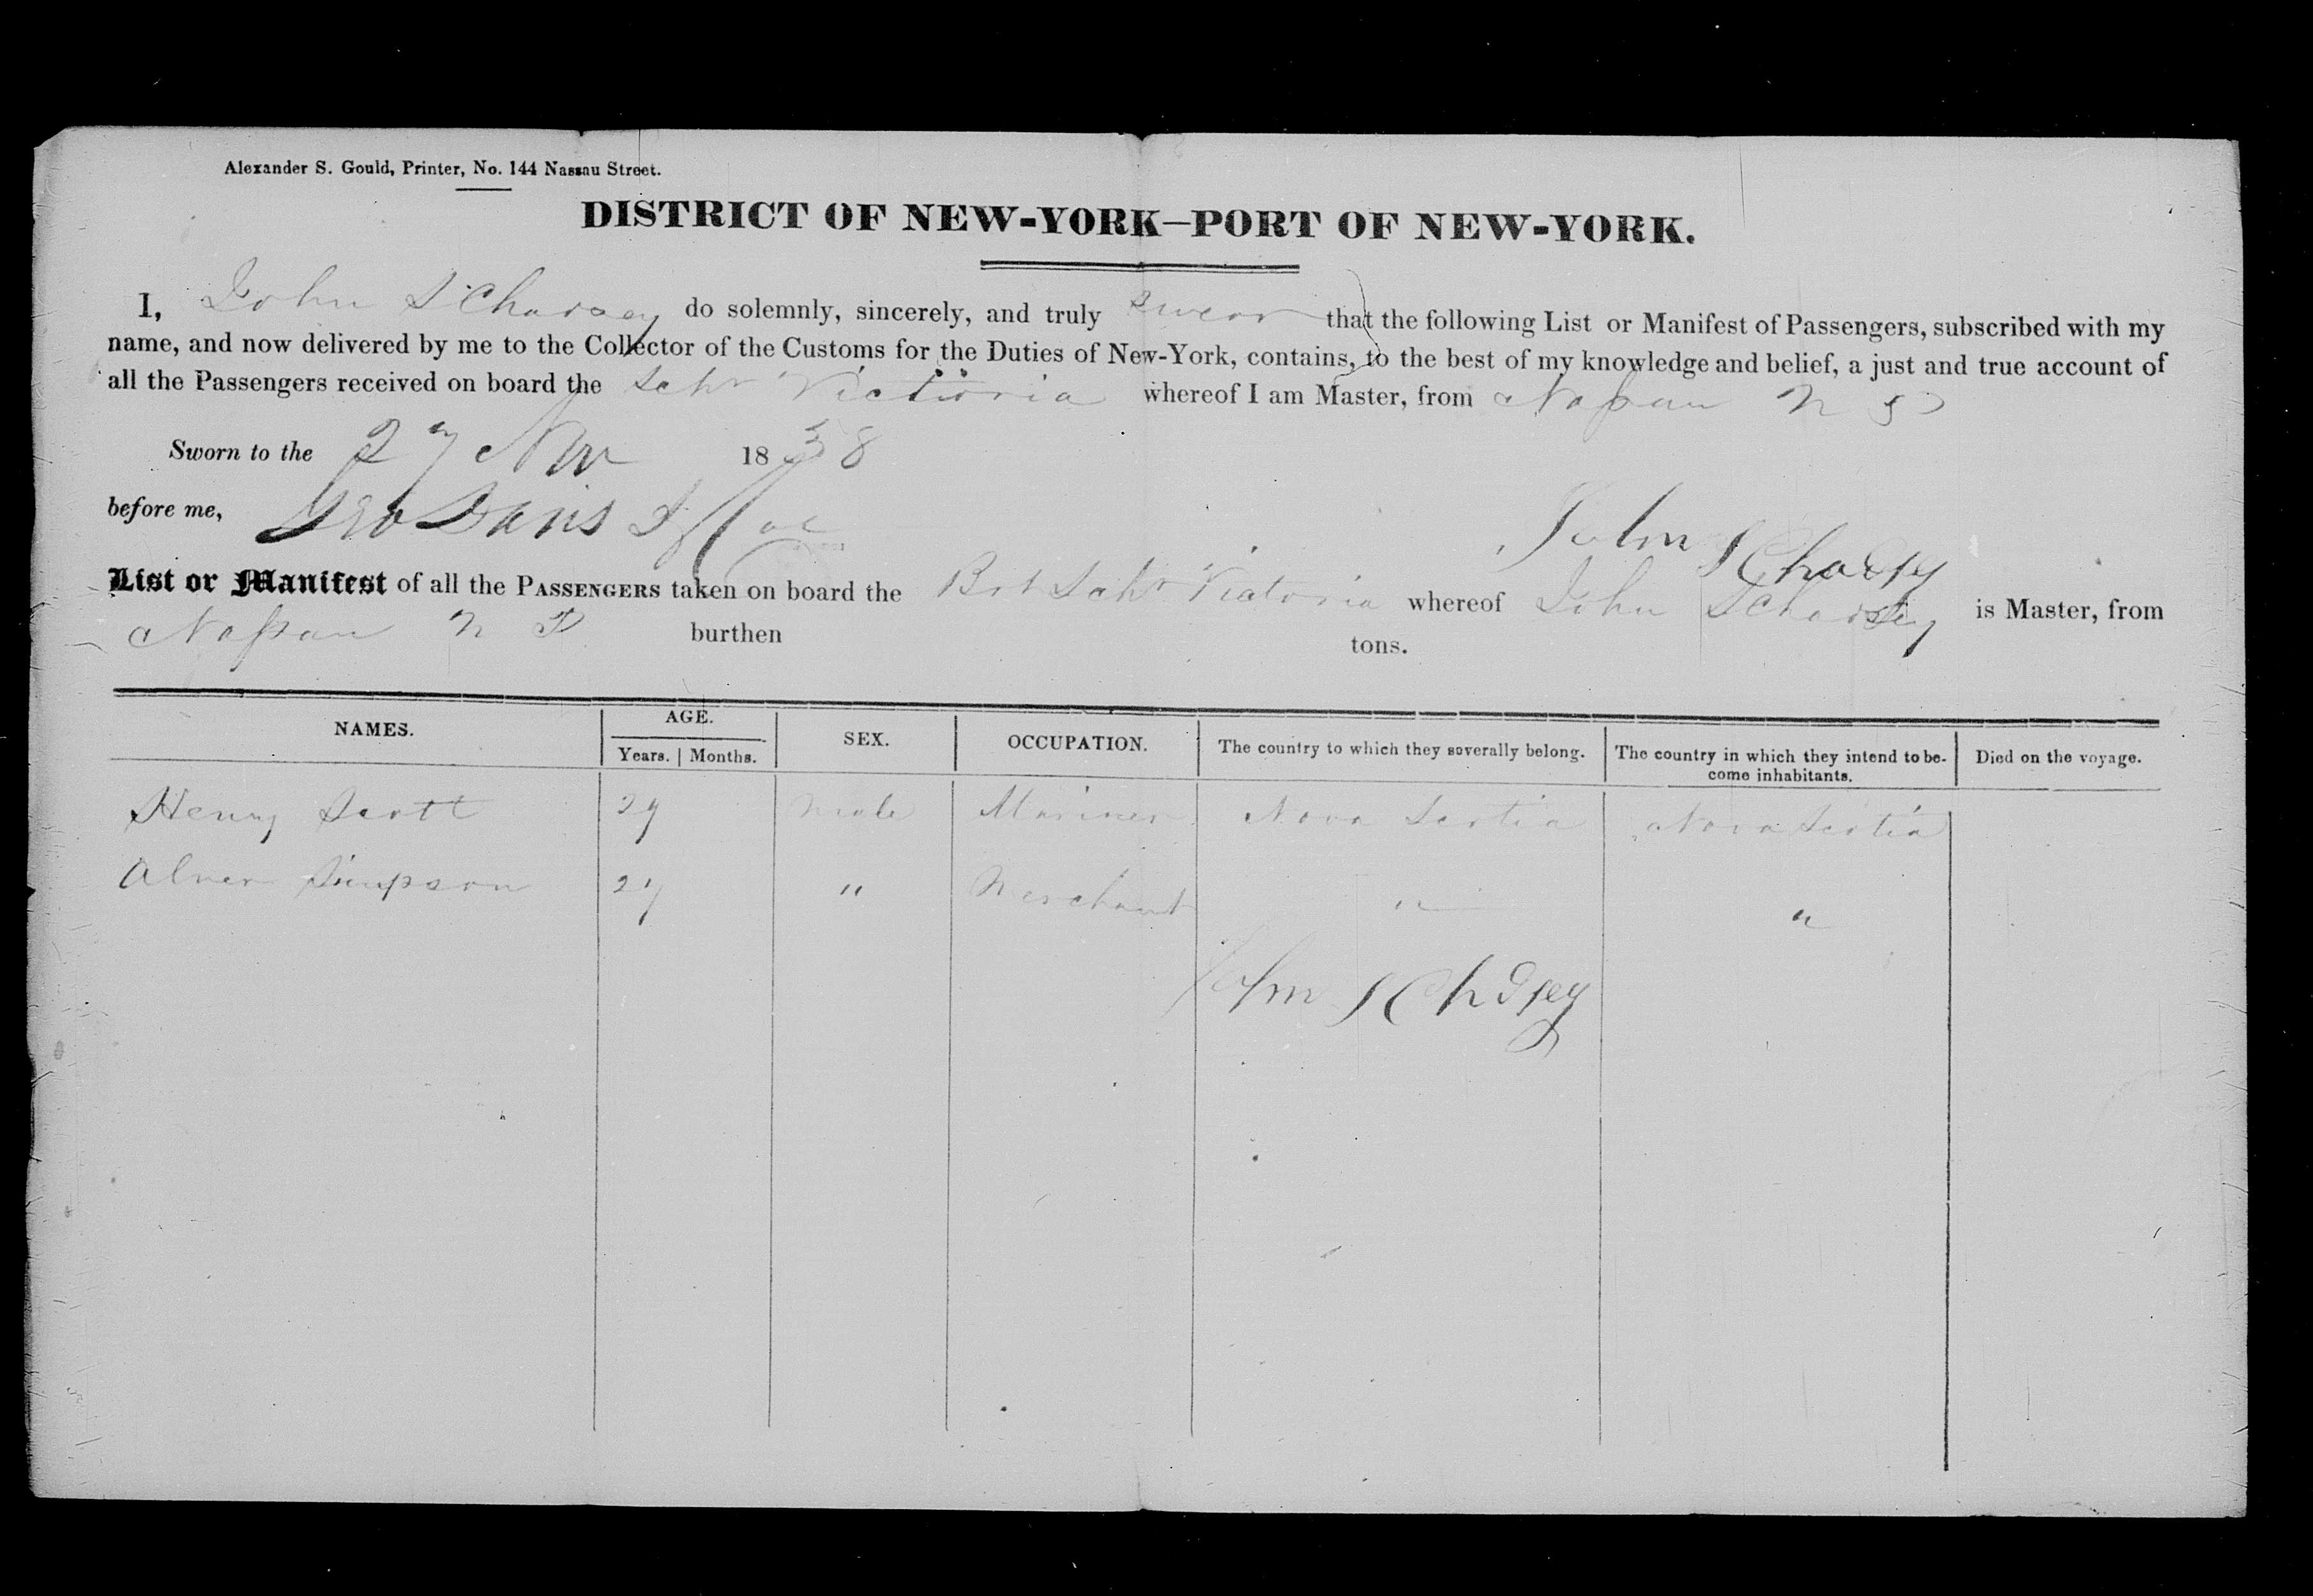 Alexander S. Gould, Printer, No. 144 Nassau Street.
DISTRICT OF NEW-YORK—PORT OF NEW-YORK.
I, John S Charsey do solemnly, sincerely, and truly swear that the following List or Manifest of Passengers, subscribed with my
name, and now delivered by me to the Collector of the Customs for the Duties of New-York, contains, to the best of my knowledge and belief, a just and true account of
all the Passengers received on board the Schr Victoria whereof I am Master, from Nassau N P
Sworn to the 27 Nov 1838
before me, Geo Davis
John S
List or Manifest of all the PASSENGERS taken on board the Brt Schr Victoria whereof John S Charsey is Master, from
Nassau N P burthen tons.
NAMES. AGE. SEX. OCCUPATION. The country to which they soverally belong. The country in which they intend to be- Died on the voyage.
Years. Months. come inhabitants.
Henry Scott 27 Male Mariner Nova Scotia Nova Scotia
Abner Simpson 27 " Merchant " "
John S